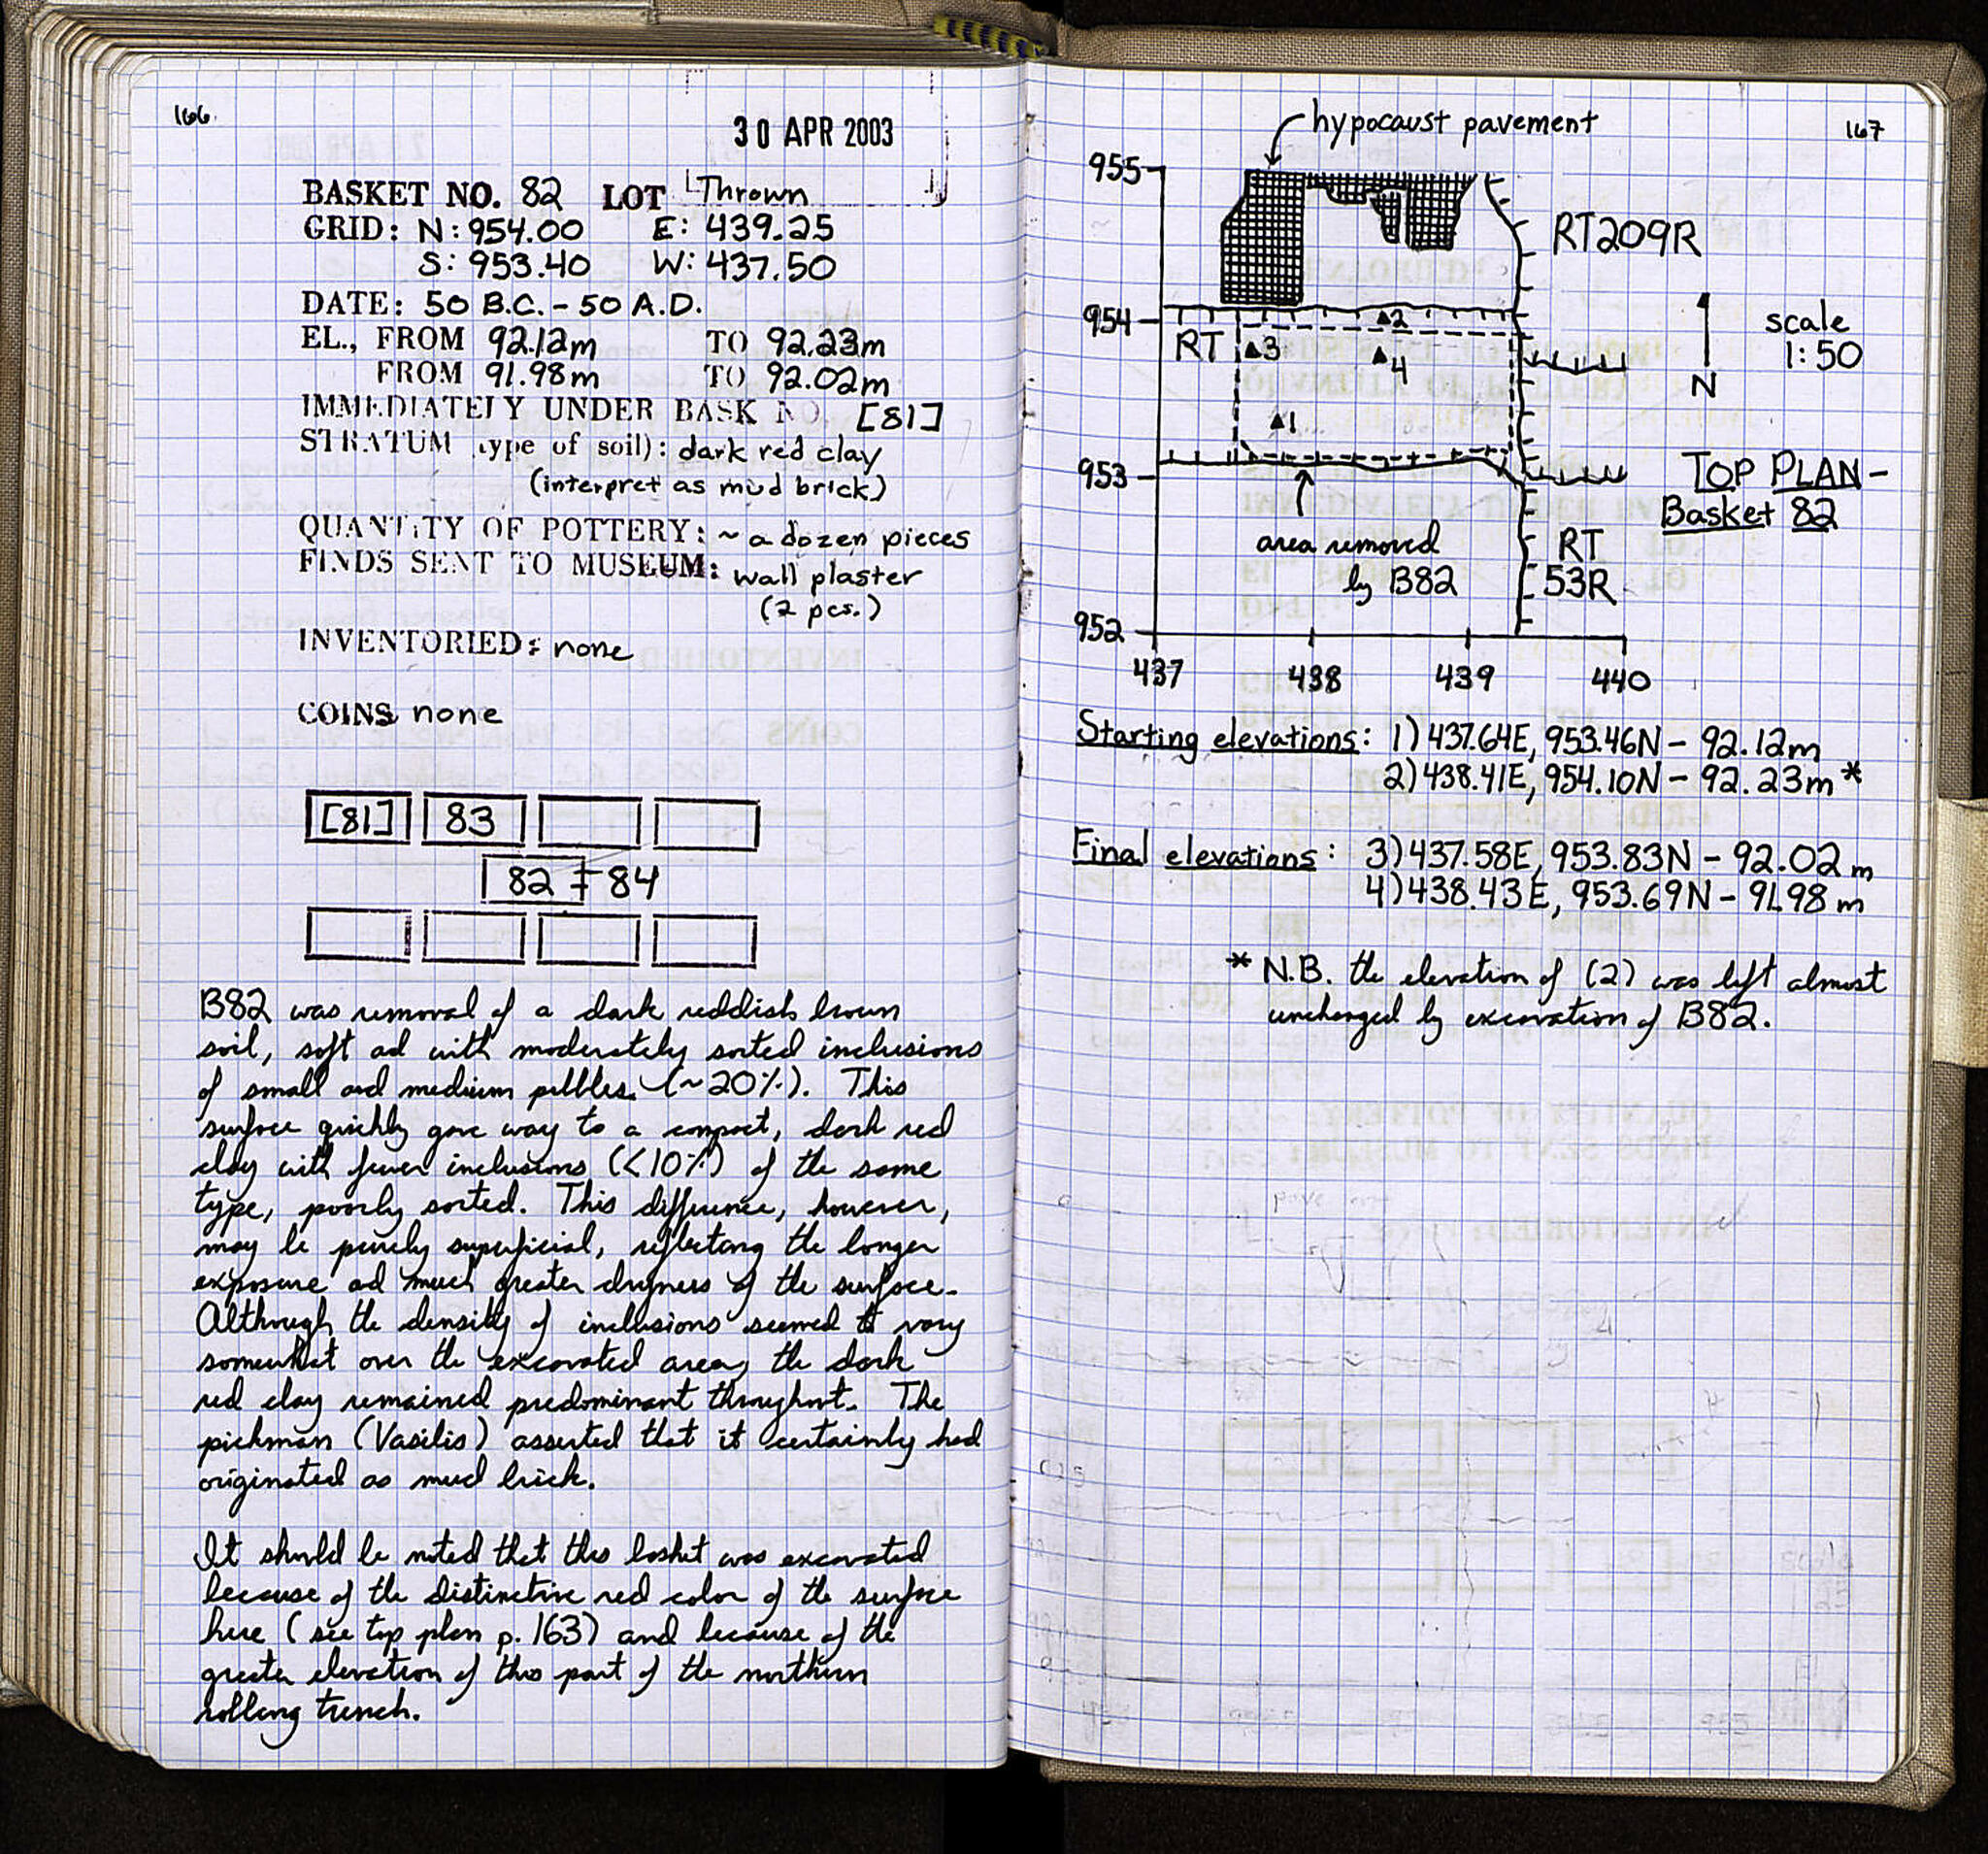 166
30 APR 2003
BASKET NO. 82 LOT Thrown
GRID: N: 954.00 E: 439.25
S: 953.40 W: 437.50
DATE: 50 B.C. - 50 A.D.
EL., FROM 92.12m TO 92.23m
FROM 91.98m TO 92.02m
IMMEDIATELY UNDER BASK NO. [81]
STRATUM type of soil): dark red clay
(interpret as mud brick)
QUANTITY OF POTTERY: ~ a dozen pieces
FINDS SENT TO MUSEUM: wall plaster
(2 pcs.)
INVENTORIED: none
COINS none
[81] 83
82 = 84
B82 was removal of a dark reddish brown
soil, soft ad with moderately sorted inclusions
of small and medium pebbles. (~20%). This
surface quickly gave way to a compact, dark red
clay with fewer inclusions (<10%) of the same
type, poorly sorted. This difference, however,
may be purely superficial, reflecting the longer
exposure ad much greater dryness of the surface.
Although the density of inclusions seemed to vary
somewhat over the excavated area, the dark
red clay remained predominant throughout. The
pickman (Vasilis) asserted that it certainly had
originated as mud brick.
It should be noted that this basket was excavated
because of the distinctive red color of the surface
here (see top plan p. 163) and because of the
greater elevation of this part of the northern
robbing trench.
167
hypocaust pavement
955
RT209R
954
2
RT 3
4
scale
1:50
N
1
953
TOP PLAN -
Basket 82
area removed
by B82
RT
53R
952
437 438 439 440
Starting elevations: 1) 437.64E, 953.46N - 92.12m
2) 438.41E, 954.10N - 92.23m *
Final elevations: 3) 437.58E, 953.83N - 92.02 m
4) 438.43E, 953.69N - 91.98 m
* N.B. the elevation of (2) was left almost
unchanged by excavation of B82.